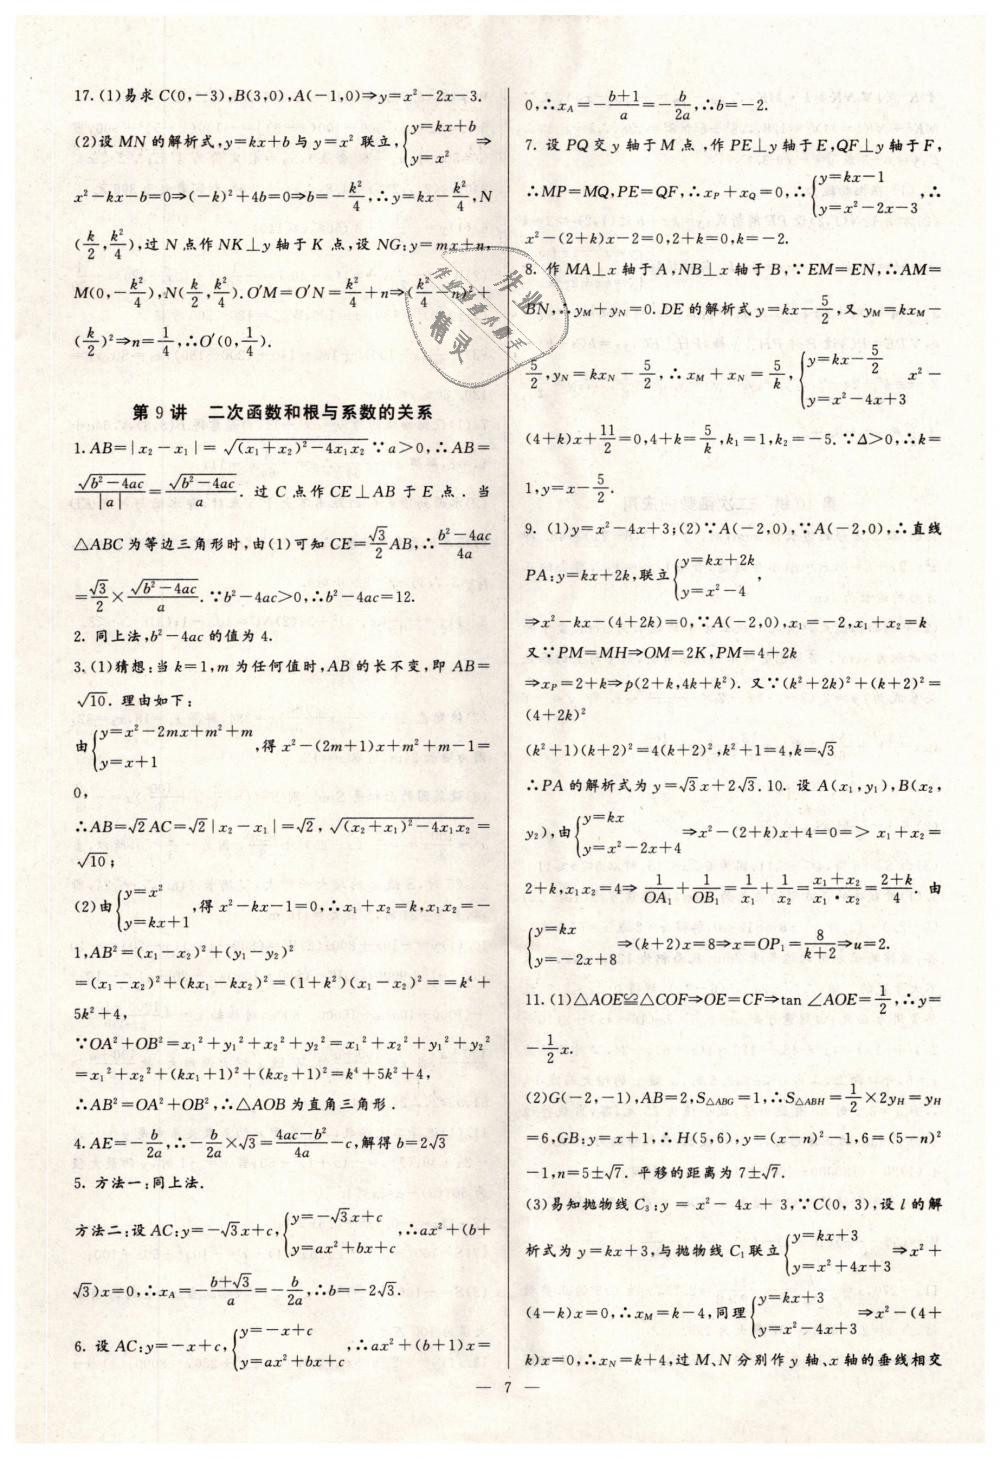 17. (1)易求 C(0,-3),B(3,0),A(-1,0)⇒y=x²-2x-3.
(2)设 MN 的解析式,y=kx+b 与 y=x² 联立,{y=kx+b y=x² ⇒
x²-kx-b=0⇒(-k)²+4b=0⇒b=-k²/4,∴y=kx-k²/4,N
(k/2,k²/4),过 N 点作 NK⊥y 轴于 K 点,设 NG:y=mx+n,
M(0,-k²/4),N(k/2,k²/4).O'M=O'N=k²/4+n⇒(k²/4-n)²+
(k/2)²⇒n=1/4,∴O'(0,1/4).
第 9 讲 二次函数和根与系数的关系
1. AB=|x₂-x₁|=√((x₁+x₂)²-4x₁x₂) ∵a>0,∴AB=
√(b²-4ac)/|a|=√(b²-4ac)/a. 过 C 点作 CE⊥AB 于 E 点. 当
△ABC 为等边三角形时,由(1)可知 CE=√3/2 AB,∴(b²-4ac)/4a
=√3/2×√(b²-4ac)/a.∵b²-4ac>0,∴b²-4ac=12.
2. 同上法,b²-4ac 的值为 4.
3. (1)猜想:当 k=1,m 为任何值时,AB 的长不变,即 AB=
√10. 理由如下:
由{y=x²-2mx+m²+m y=x+1 ,得 x²-(2m+1)x+m²+m-1=
0,
∴AB=√2AC=√2|x₂-x₁|=√2,√((x₂+x₁)²-4x₁x₂)=
√10;
(2)由{y=x² y=kx+1 ,得 x²-kx-1=0,∴x₁+x₂=k,x₁x₂=-
1,AB²=(x₁-x₂)²+(y₁-y₂)²
=(x₁-x₂)²+(kx₁-kx₂)²=(1+k²)(x₁-x₂)²==k⁴+
5k²+4,
∵OA²+OB²=x₁²+y₁²+x₂²+y₂²=x₁²+x₂²+y₁²+y₂²
=x₁²+x₂²+(kx₁+1)²+(kx₂+1)²=k⁴+5k²+4,
∴AB²=OA²+OB²,∴△AOB 为直角三角形.
4. AE=-b/2a,∴-b/2a×√3=(4ac-b²)/4a-c,解得 b=2√3
5. 方法一:同上法.
方法二:设 AC:y=-√3x+c,{y=-√3x+c y=ax²+bx+c ,∴ax²+(b+
√3)x=0,∴xA=-(b+√3)/a=-b/2a,∴b=-2√3.
6. 设 AC:y=-x+c,{y=-x+c y=ax²+bx+c ,∴ax²+(b+1)x=
0,∴xA=-(b+1)/a=-b/2a,∴b=-2.
7. 设 PQ 交 y 轴于 M 点,作 PE⊥y 轴于 E,QF⊥y 轴于 F,
∴MP=MQ,PE=QF,∴xP+xQ=0,∴{y=kx-1 y=x²-2x-3 ,∴
x²-(2+k)x-2=0,2+k=0,k=-2.
8. 作 MA⊥x 轴于 A,NB⊥x 轴于 B,∵EM=EN,∴AM=
BN,∴yM+yN=0. DE 的解析式 y=kx-5/2,又 yM=kxM-
5/2,yN=kxN-5/2,∴xM+xN=5/k,{y=kx-5/2 y=x²-4x+3 x²-
(4+k)x+11/2=0,4+k=5/k,k₁=1,k₂=-5.∵△>0,∴k=
1,y=x-5/2.
9. (1)y=x²-4x+3;(2)∵A(-2,0),∵A(-2,0),∴直线
PA:y=kx+2k,联立{y=kx+2k y=x²-4 ,
⇒x²-kx-(4+2k)=0,∵A(-2,0),x₁=-2,x₁+x₂=k
又∵PM=MH⇒OM=2K,PM=4+2k
⇒xP=2+k⇒p(2+k,4k+k²). 又∵(k²+2k)²+(k+2)²=
(4+2k)²
(k²+1)(k+2)²=4(k+2)²,k²+1=4,k=√3
∴PA 的解析式为 y=√3x+2√3. 10. 设 A(x₁,y₁),B(x₂,
y₂),由{y=kx y=x²-2x+4 ⇒x²-(2+k)x+4=0=> x₁+x₂=
2+k,x₁x₂=4⇒1/OA₁+1/OB₁=1/x₁+1/x₂=(x₁+x₂)/(x₁·x₂)=(2+k)/4. 由
{y=kx y=-2x+8 ⇒(k+2)x=8⇒x=OP₁=8/(k+2)⇒u=2.
11. (1)△AOE≌△COF⇒OE=CF⇒tan∠AOE=1/2,∴y=
-1/2x.
(2)G(-2,-1),AB=2,S△ABG=1,∴S△ABH=1/2×2yH=yH
=6,GB:y=x+1,∴H(5,6),y=(x-n)²-1,6=(5-n)²
-1,n=5±√7. 平移的距离为 7±√7.
(3)易知抛物线 C₃:y=x²-4x+3,∵C(0,3),设 l 的解
析式为 y=kx+3,与抛物线 C₁ 联立{y=kx+3 y=x²+4x+3 ⇒x²+
(4-k)x=0,∴xM=k-4,同理{y=kx+3 y=x²-4x+3 ⇒x²-(4+
k)x=0,∴xN=k+4,过 M、N 分别作 y 轴、x 轴的垂线相交
— 7 —